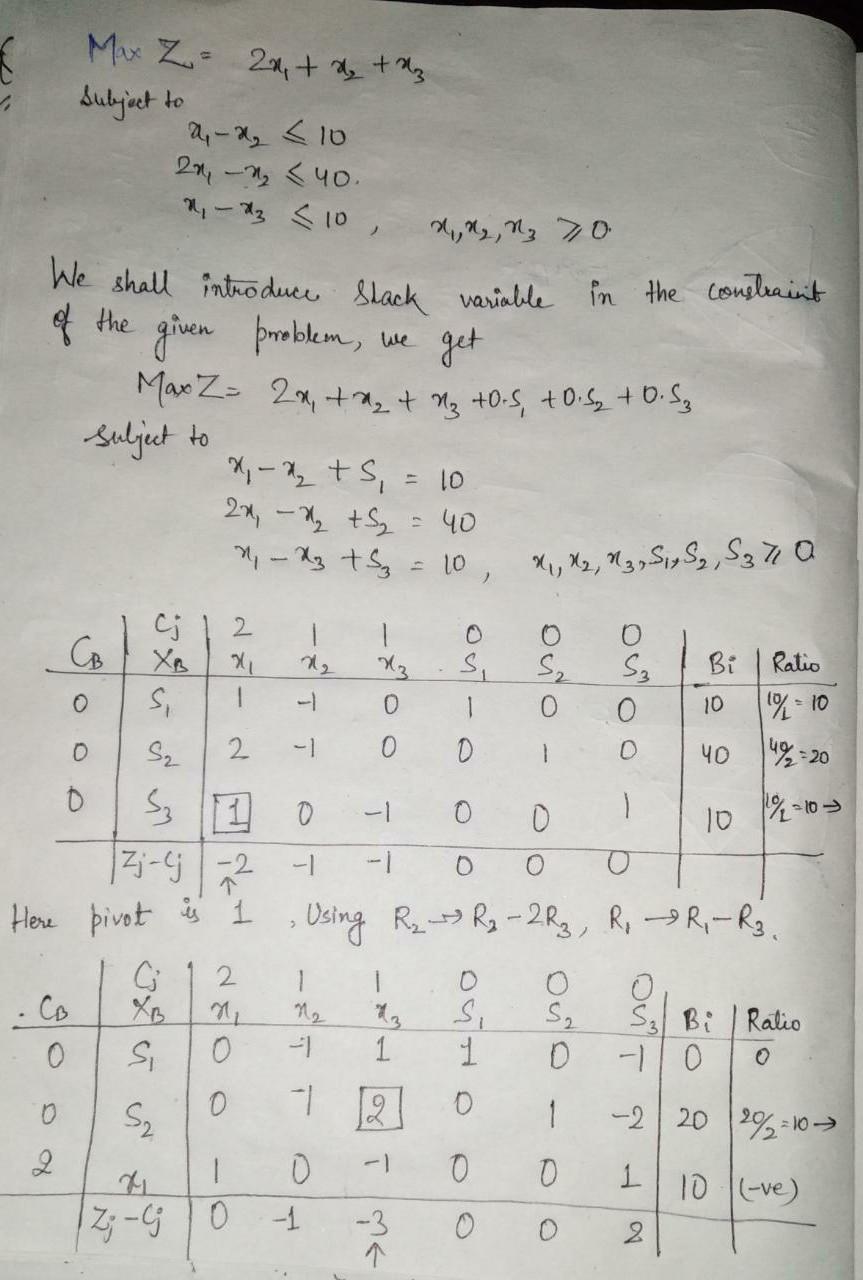 Max Z = 2x₁ + x₂ + x₃
Subject to
x₁ - x₂ ≤ 10
2x₁ - x₂ ≤ 40.
x₁ - x₃ ≤ 10 , x₁, x₂, x₃ ≥ 0.
We shall introduce Slack variable in the constraint
of the given problem, we get
Max Z = 2x₁ + x₂ + x₃ + 0.S₁ + 0.S₂ + 0.S₃
Subject to
x₁ - x₂ + S₁ = 10
2x₁ - x₂ + S₂ = 40
x₁ - x₃ + S₃ = 10 , x₁, x₂, x₃, S₁, S₂, S₃ ≥ 0
Cj 2 1 1 0 0 0
CB XB x₁ x₂ x₃ S₁ S₂ S₃ Bi Ratio
0 S₁ 1 -1 0 1 0 0 10 10/1 = 10
0 S₂ 2 -1 0 0 1 0 40 40/2 = 20
0 S₃ 1 0 -1 0 0 1 10 10/1 = 10 →
Zj - Cj -2 -1 -1 0 0 0
↑
Here pivot is 1 , Using R₂ → R₂ - 2R₃, R₁ → R₁ - R₃.
Cj 2 1 1 0 0 0
CB XB x₁ x₂ x₃ S₁ S₂ S₃ Bi Ratio
0 S₁ 0 -1 1 1 0 -1 0 0
0 S₂ 0 -1 2 0 1 -2 20 20/2 = 10 →
2 x₁ 1 0 -1 0 0 1 10 (-ve)
Zj - Cj 0 -1 -3 0 0 2
↑